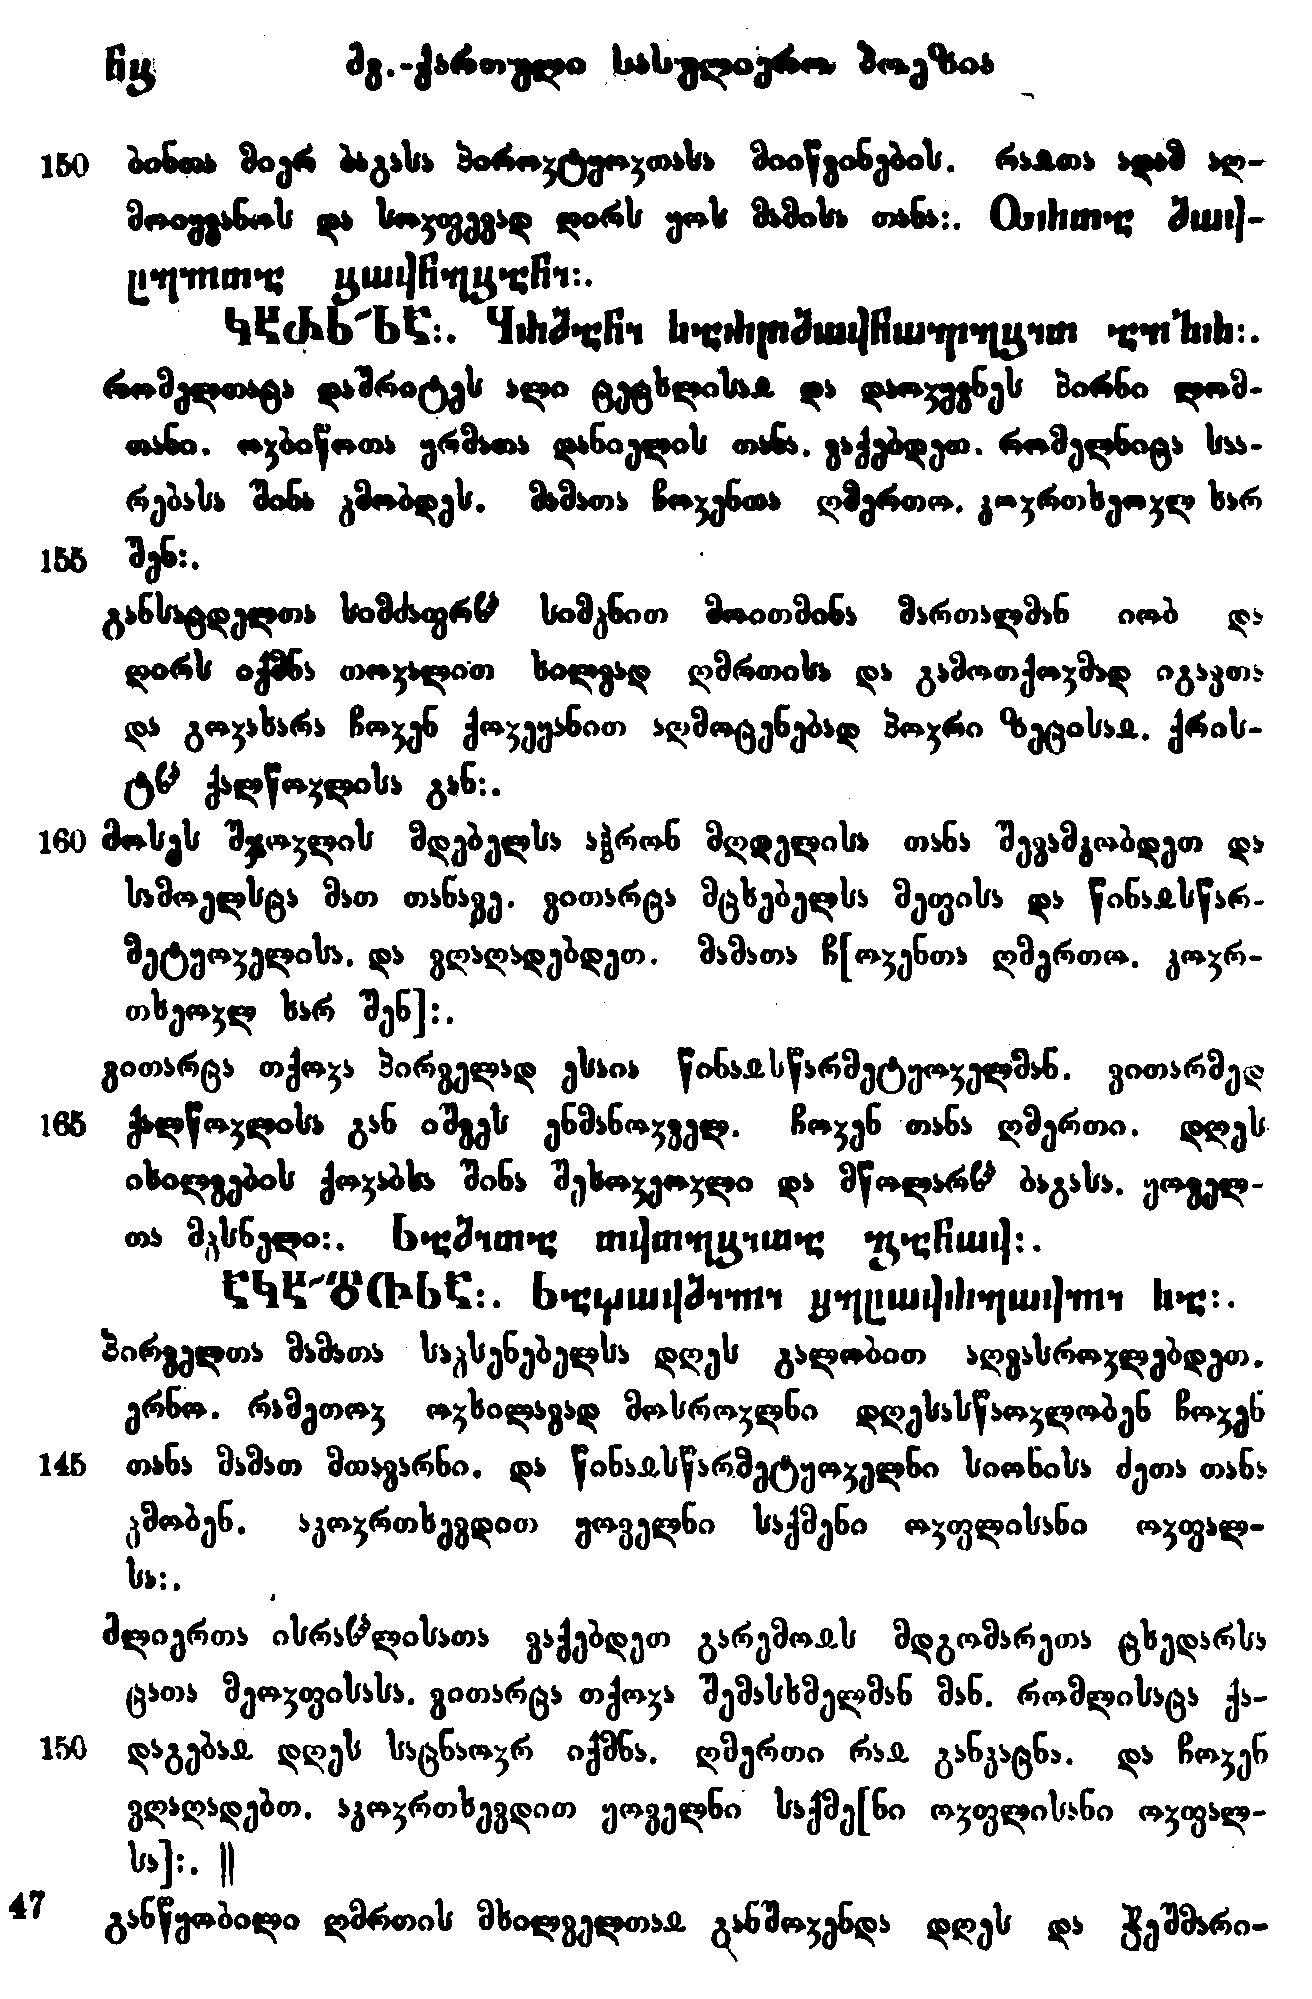 მგ.-ქართული სასულიერო პოეზია
150 ბინთა მიერ ბაგასა პიროჳტყოჳთასა მიიწვინების. რაჲთა ადამ აღ-
მოიყვანოს და სოჳფევად ღირს ყოს მამისა თანა:.
რომელთაცა დაშრიტეს ალი ცეცხლისაჲ და დაოჳყვნეს პირნი ლომ-
თანი. ოჳბიწოთა ყრმათა დანიელის თანა. ვაქებდეთ. რომელნიცა საა-
რებასა შინა ჴმობდეს. მამათა ჩოჳენთა ღმერთო. კოჳრთხეოჳლ ხარ
155 შენ:.
განსაცდელთა სიმძაფრჱ სიმჴნით მოითმინა მართალმან იობ და
ღირს იქმნა თოჳალით ხილვად ღმრთისა და გამოთქოჳმად იგავთა
და გოჳახარა ჩოჳენ ქოჳეყანით აღმოცენებად პოჳრი ზეცისაჲ. ქრის-
ტჱ ქალწოჳლისა გან:.
160 მოსეს შჯოჳლის მდებელსა აჰრონ მღდელისა თანა შევამკობდეთ და
სამოელსცა მათ თანავე. ვითარცა მცხებელსა მეფისა და წინაჲსწარ-
მეტყოჳელისა. და ვღაღადებდეთ. მამათა ჩ[ოჳენთა ღმერთო. კოჳრ-
თხეოჳლ ხარ შენ]:.
ვითარცა თქოჳა პირველად ესაია წინაჲსწარმეტყოჳელმან. ვითარმედ
165 ქალწოჳლისა გან იშვეს ენმანოჳველ. ჩოჳენ თანა ღმერთი. დღეს
იხილვების ქოჳაბსა შინა შეხოჳეოჳლი და მწოლარჱ ბაგასა. ყოველ-
თა მჴსნელი:.
პირველთა მამათა საჴსენებელსა დღეს გალობით აღვასროჳლებდეთ.
ერნო. რამეთოჳ ოჳხილავად მოსროჳლნი დღესასწაოჳლობენ ჩოჳენ
145 თანა მამათ მთავარნი. და წინაჲსწარმეტყოჳელნი სიონისა ძეთა თანა
ჴმობენ. აკოჳრთხევდით ყოველნი საქმენი ოჳფლისანი ოჳფალ-
სა:.
მლიერთა ისრაჱლისათა ვაქებდეთ გარემოჲს მდგომარეთა ცხედარსა
ცათა მეოჳფისასა. ვითარცა თქოჳა შემასხმელმან მან. რომლისაცა ქა-
150 დაგებაჲ დღეს საცნაოჳრ იქმნა. ღმერთი რაჲ განკაცნა. და ჩოჳენ
ვღაღადებთ. აკოჳრთხევდით ყოველნი საქმე[ნი ოჳფლისანი ოჳფალ-
სა]:. ||
47 განწყობილი ღმრთის მხილველთაჲ განშოჳენდა დღეს და ჭეშმარი-